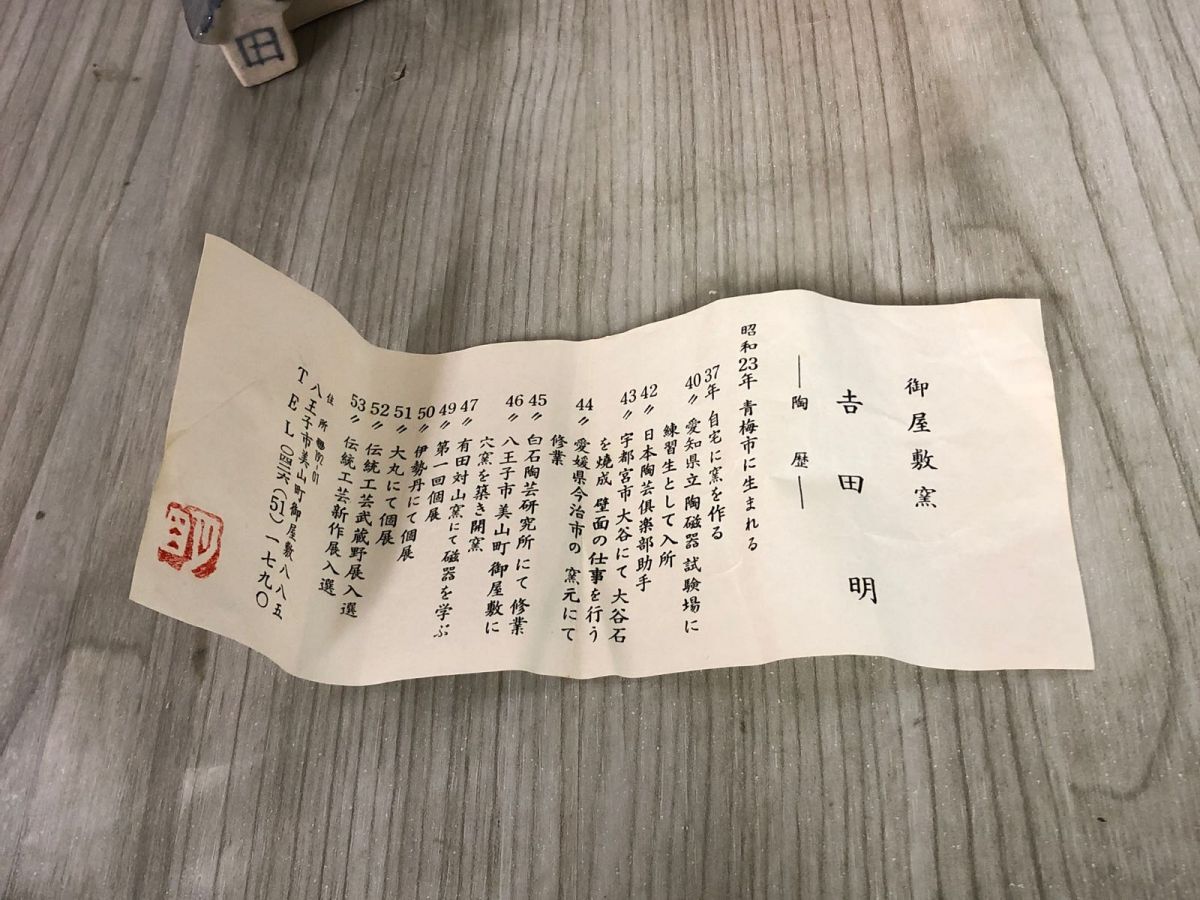 御屋敷窯
吉田明
―陶歴―
昭和23年 青梅市に生まれる
37年 自宅に窯を作る
40〃 愛知県立陶磁器試験場に
練習生として入所
42〃 日本陶芸倶楽部助手
43〃 宇都宮市大谷にて大谷石
を焼成 壁面の仕事を行う
44〃 愛媛県今治市の窯元にて
修業
45〃 白石陶芸研究所にて修業
46〃 八王子市美山町御屋敷に
穴窯を築き開窯
47〃 有田対山窯にて磁器を学ぶ
49〃 第一回個展
50〃 伊勢丹にて個展
51〃 大丸にて個展
52〃 伝統工芸武蔵野展入選
53〃 伝統工芸新作展入選
住所 192-01
八王子市美山町御屋敷八八五
TEL〇四二六(51)一七九〇
明
田